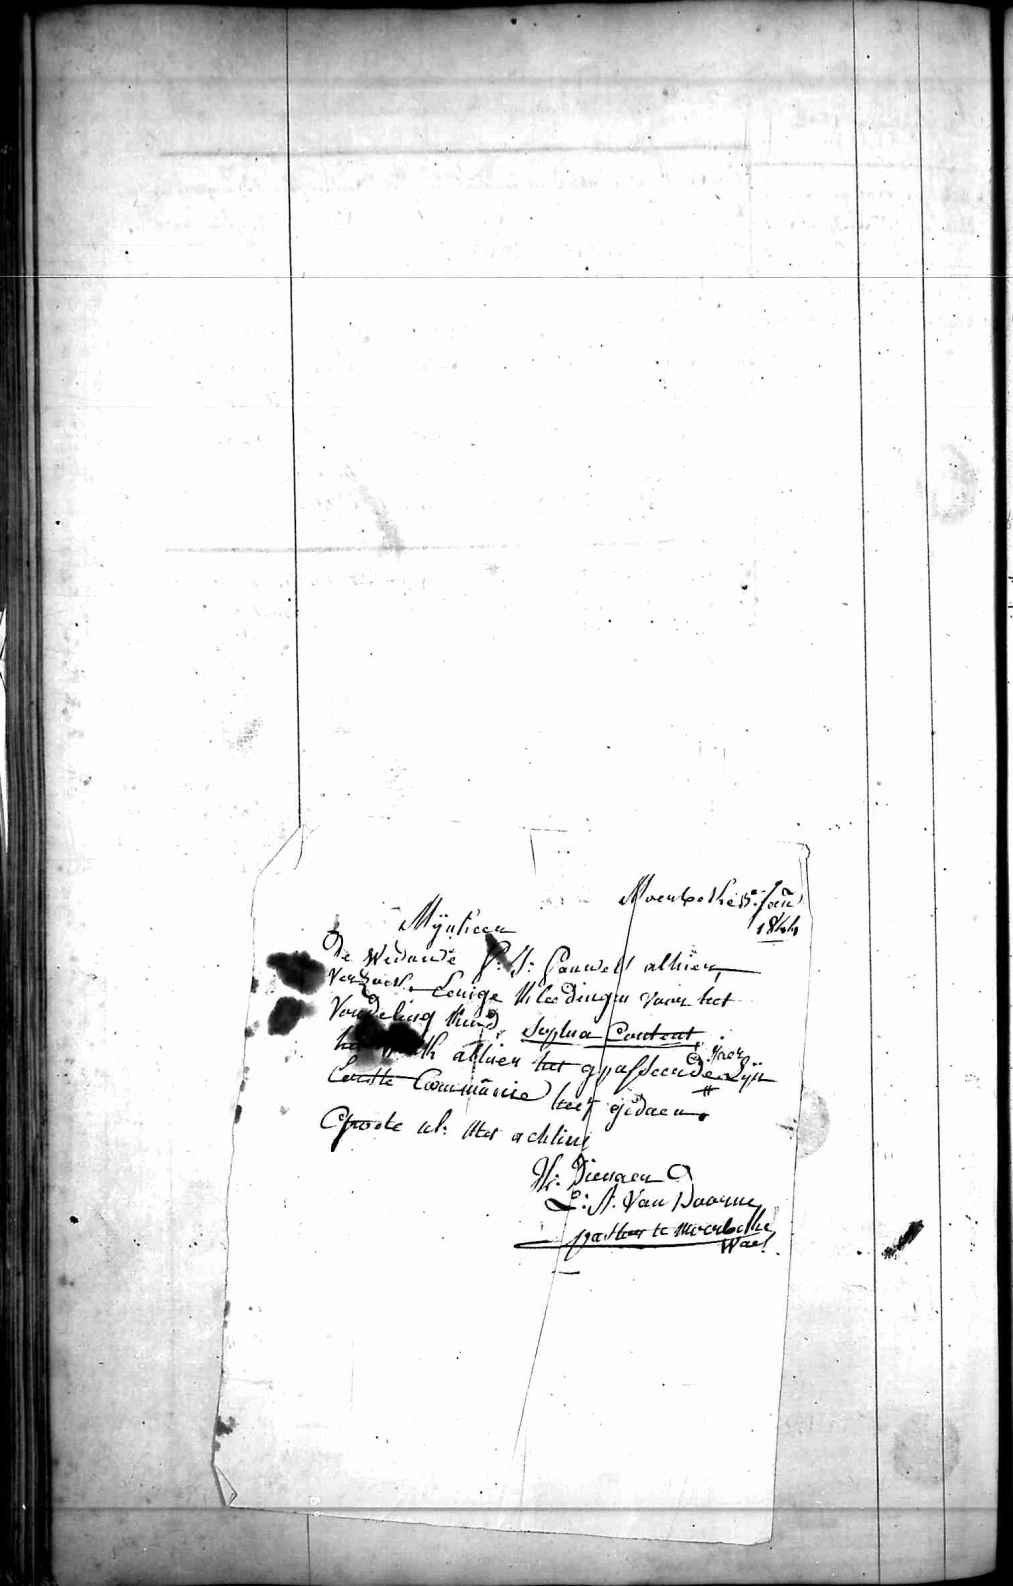 Moerbeke 15 Jañ
1844
Mynheer
De Weduwe P: J: Pauwels alhier,
Verzoekt Eenige Kleedingen voor het
Vondeling Kind, Sophia Content,
alhier het gepasseerde Jaer Zyn
Eerste Commūnie heeft gedaen.
Groete ul: Met achting
Dienaer
L: A. Van Doorne
pastoor te Moerbeke
Waes.